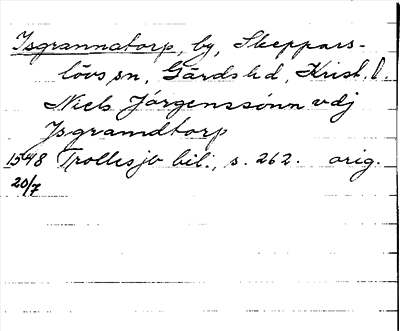 Isgrannatorp, by, Skeppars-
lövs sn, Gärds hd, Krist. l.
Niels Jörgenssönn vdj
Jsgramdtorp
1548 Trollesjö bil., s. 262. orig.
20/7